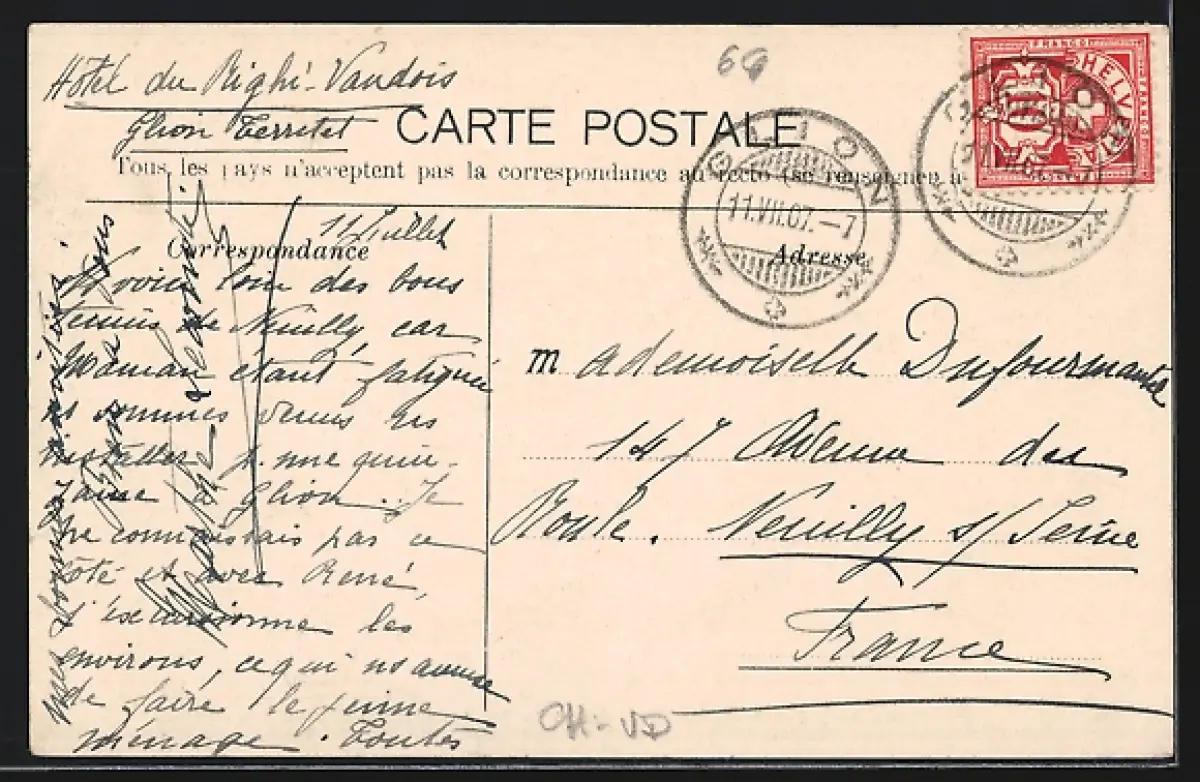 Hôtel du Righi-Vaudois
Glion Territet
69
CARTE POSTALE
Tous les pays n'acceptent pas la correspondance au recto (se renseigner à
HELVETIA
FRANCO
10
GLION
11.VII.07.-7
Correspondance
Adresse
11 Juillet
Ns voici loin des bons
tennis de Neuilly, car
Maman étant fatiguée
ns sommes venus ns
installer p. une quin-
zaine à Glion. Je
ne connaissais pas ce
côté et avec René,
j'excursionne les
environs, ce qui ns amuse
de faire le jeune
ménage. Toutes
mes bonnes amitiés
Mademoiselle Dufourmantel
147 Avenue du
Roule. Neuilly s/ Seine
France
CH-VD